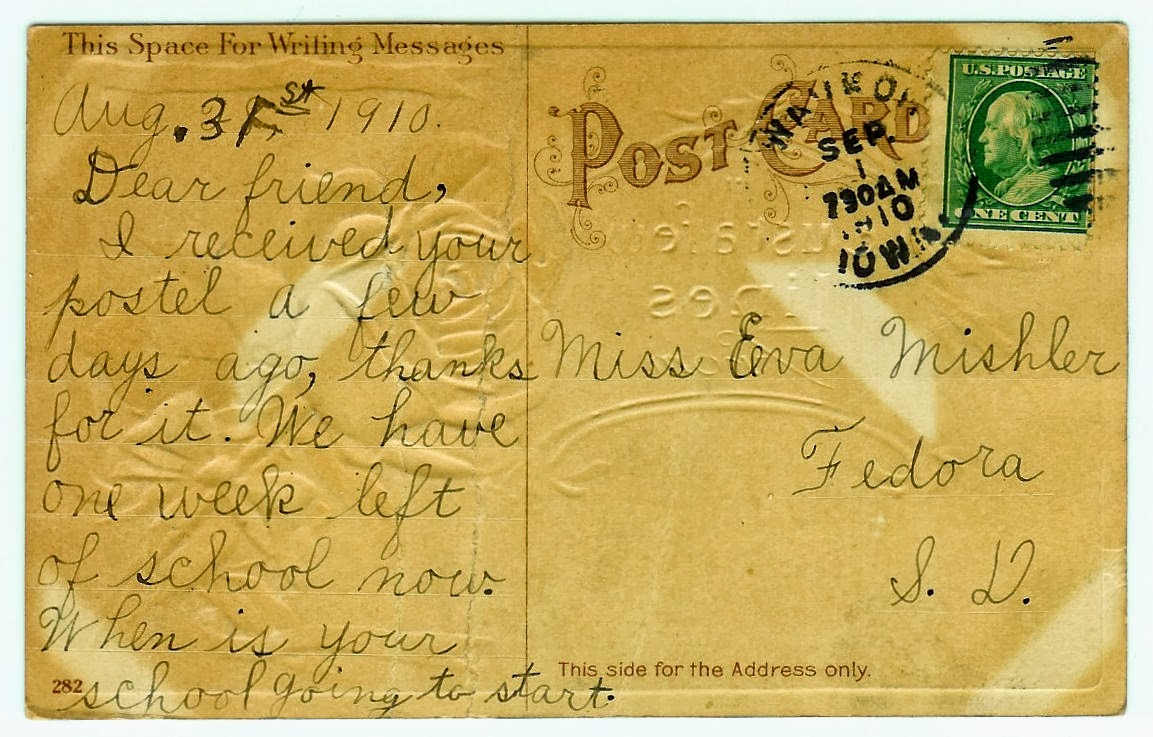 This Space For Writing Messages
Aug. 31st 1910.
Dear friend,
I received your
postel a few
days ago, thanks
for it. We have
one week left
of school now.
When is your
school going to start.
282
POST CARD
WAUKON
SEP.
1
730 AM
1910
IOWA
U.S. POSTAGE
ONE CENT
Miss Eva Mishler
Fedora
S. D.
This side for the Address only.